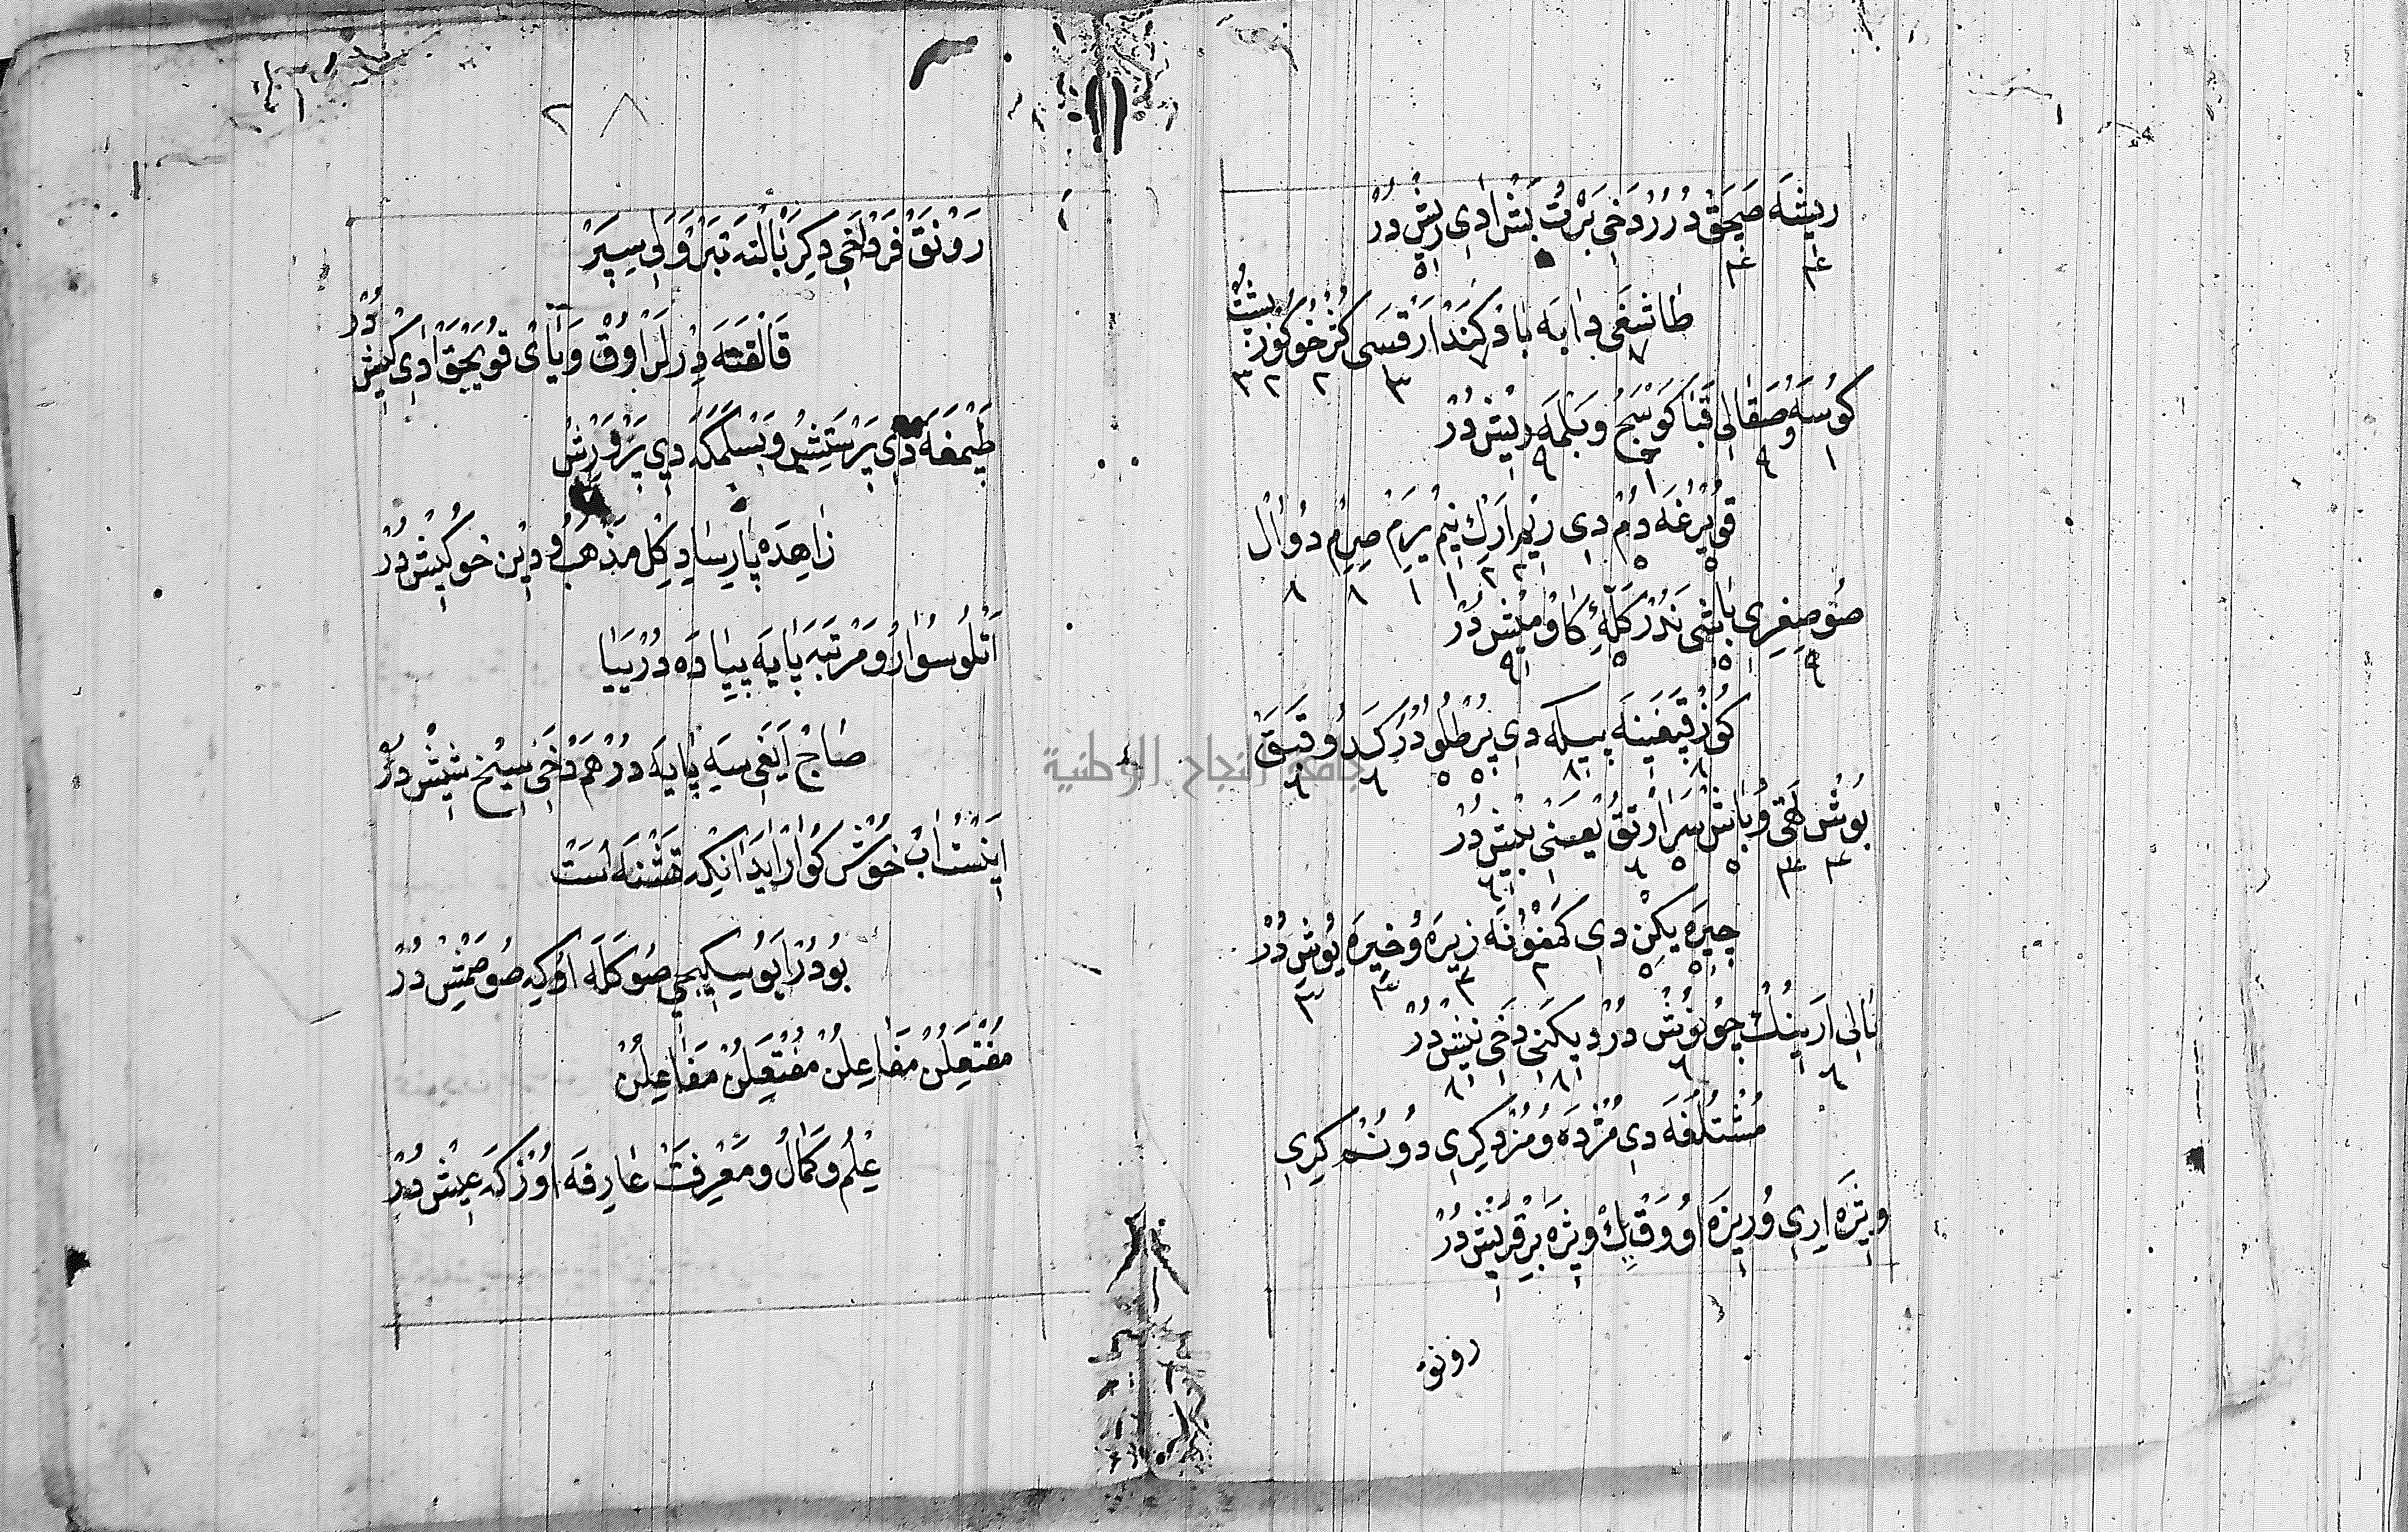 ریشَه صَچَقْ دُرُرْ دَخِی بَرْتْ بَتْش اَدِی رِیشْ دُرْ
طاشغی دابه باد کَنَد اَرْقَسی کُنْز خُو کوز پُشتْ
کوسَه وُ صَقَالِی قَبَا کَوْسَجُ وبَلْمَه رِیش دُرْ
قُویْرُغَه دُمْ دِی رِیم اَرِکْ نِیمْ یَرِمْ صِرِمْ دُوَالْ
صُو صِغِرِی بَاشِی نَدُرْ کَلّهٔ گاوْ مِیشْ دُرْ
کوز قَپَغِینَه پیلکه دِی یُرْطُلُو دُرْ کَدُو قَبَقْ
بُوشْ تَهِی وُ بَاشْ سَرْ اَرْتُقْ یَعنِی بِیش دُرْ
چِیرَه یِکِنْ دِی کَهَفُوُنَه زِیرَه وُ خِیرَه یُوش دُرْ
بَالِی اَرِینُكْ چُو نُوشْ دُرْ دِیکَنِی دَخِی نِیشْ دُرْ
مُشْتُلُغَه دِی مُژْدَه وُ مُزْد کِرِی دُونُمْ کِرِی
وِیژَه اِرِی وُ رِیزَه اوُوَقْ بِلْ وِیژَه بَرْقَرِیشْ دُرْ
رونق
رَوْنَقْ فَرْ دَاخِی دِکِرْ بَالْتَه تَبَرْ وَلِی سِپَرْ
قَالْقَنَه دِرْلَرْ اوُقْ وَیَایْ قُویَجَقْ اَدِی کِیش دُرْ
طَپْمَغَه دِی پَرَسْتِشُ وبَسْلَمَکَه دِی پَرْوَرِشْ
زَاهِدَه پَارِسَا دِکِلْ مَذْهَبُ و دِینْ خُو کِیش دُرْ
اَتْلُو سُوَارُ و مَرْتَبَه پَایَه پِیَادَه دُرْ یَیَا
صَاجْ اَیَغِی سِه پَایَه دُرْ هَمْ دَخِی سِیخْ شِیشْ دُرْ
اِینَسْت ابْ خُوشْ کُوَارْ اَیدَ انکِه تَشْنَه اَسْت
بُودُرْ اَیُو سکیجی صُو کَلَه اوُکِه صُوصَمِشْ دُرْ
مُفْتَعِلُنْ مَفَاعِلُنْ مُفْتَعِلُنْ مَفَاعِلُنْ
عِلْمُ و کَمَالُ و مَعْرِفَتْ عَارِفَه اوُزْکَه عِیشْ دُرْ
جامعة النجاح الوطنية